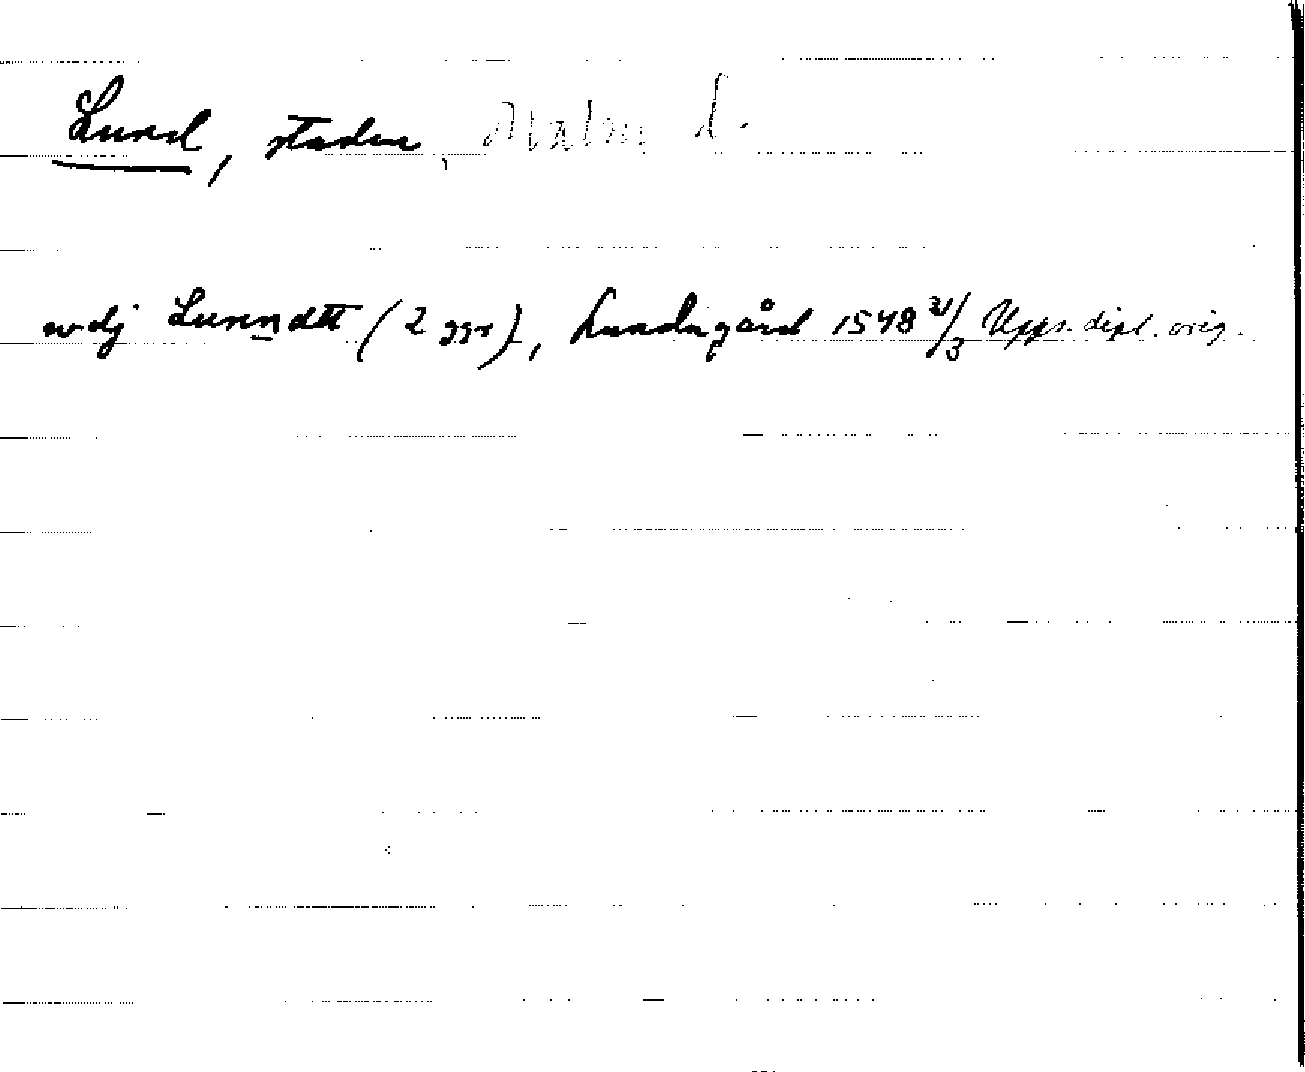 Lund, staden, Malm l.
wdj Lunndtt (2 ggr), Lundagård 1548 21/3 Upps. dipl. orig.